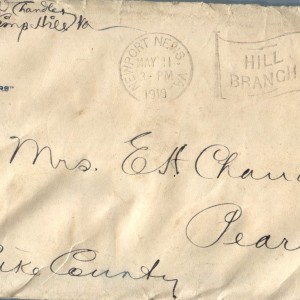 Chandler
Camp Hill Va
NEWPORT NEWS, VA.
MAY 11
3-PM
1918
HILL
BRANCH
RS"
Mrs. E H Chan
Pear
Pike County